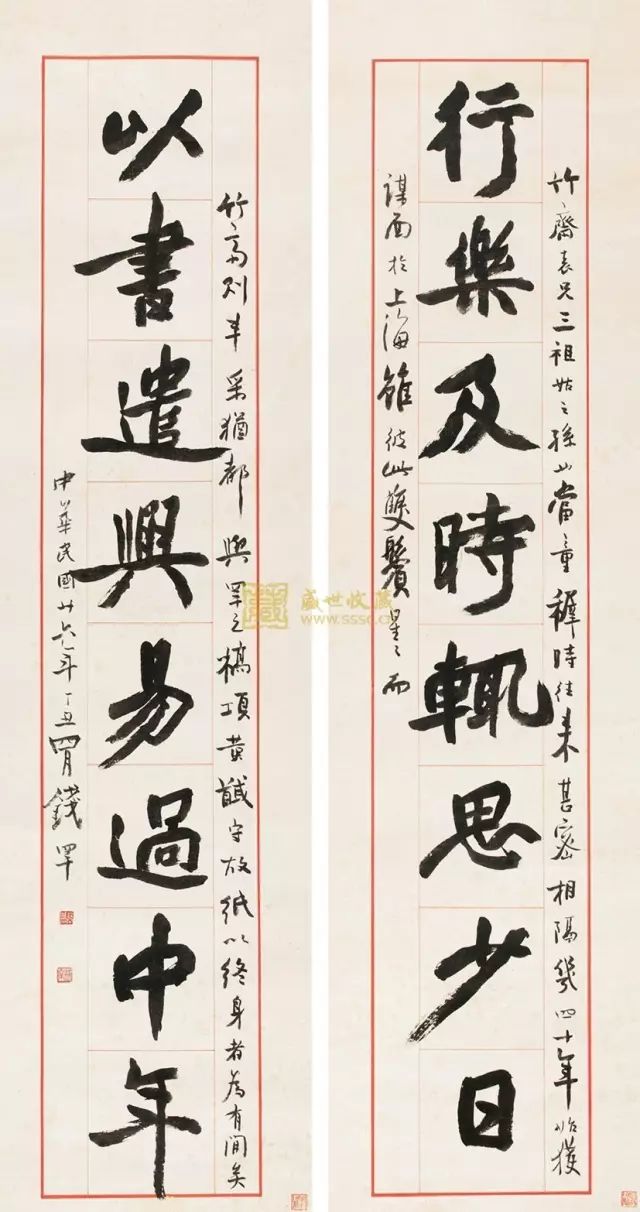 竹齋表兄三祖姑之孫也當童穉時往來甚密相隔幾四十年始獲
行樂及時輒思少日
謀面於上海雖彼此雙鬢星〻而
竹齋則丰采猶都與罕之槁項黃馘守故紙以終身者為有間矣
以書遣興易過中年
中華民國廿六年丁丑四月錢罕
盛世收藏
www.sssc.cn